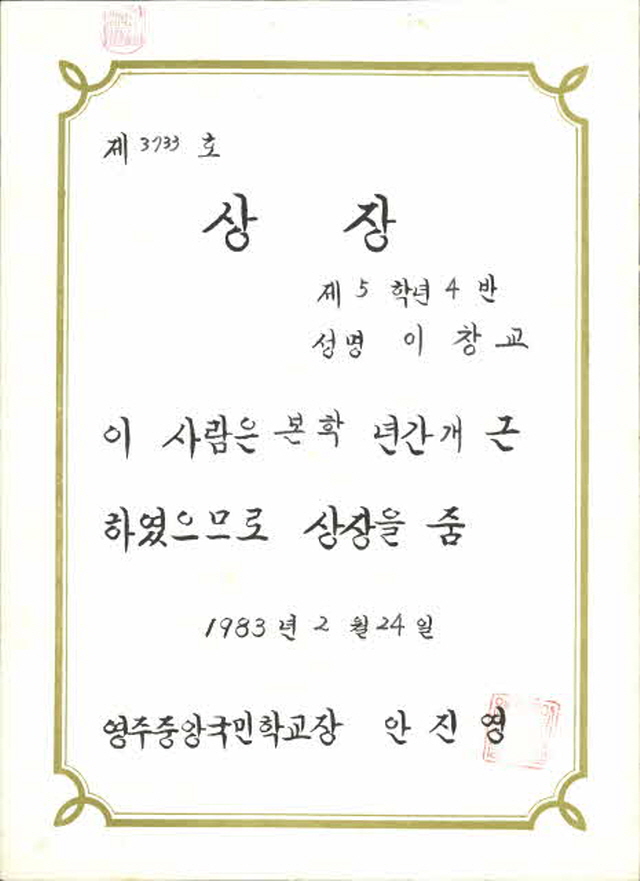 제 3733 호
상 장
제 5 학년 4 반
성명 이 창 교
이 사람은 본 학 년간 개 근
하였으므로 상장을 줌
1983 년 2 월 24 일
영주중앙국민학교장 안 진 영